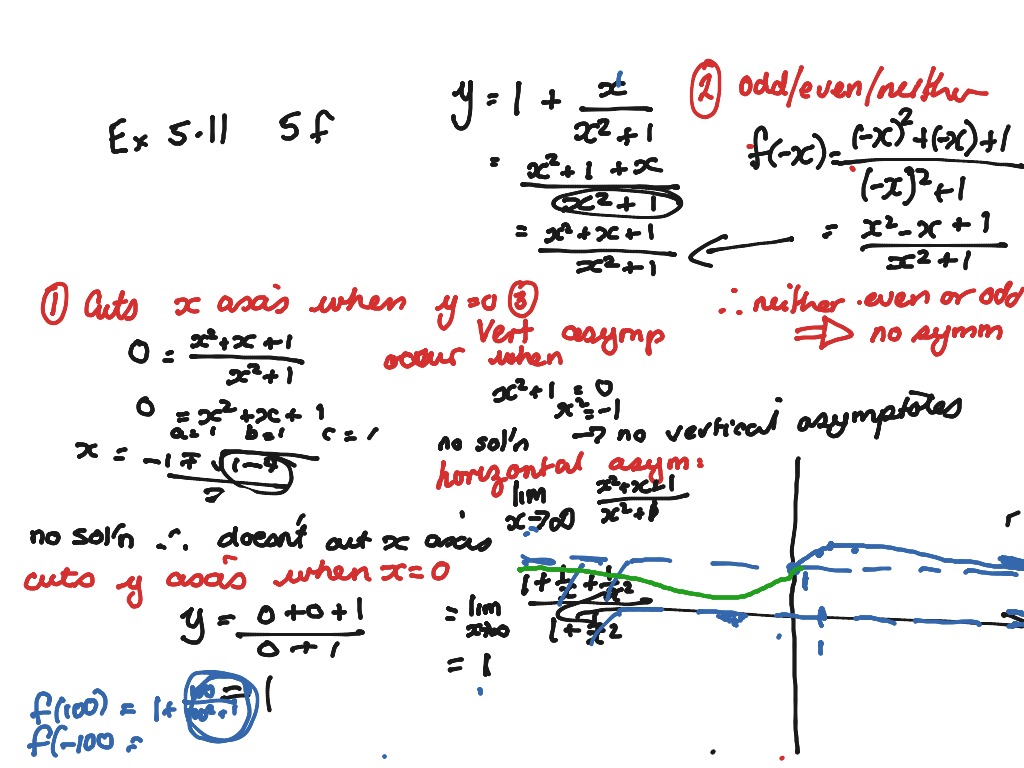 Ex 5.11 5f
y = 1 + x / x² + 1
= x² + 1 + x / x² + 1
= x² + x + 1 / x² + 1
② odd/even/neither
f(-x) = (-x)² + (-x) + 1 / (-x)² + 1
= x² - x + 1 / x² + 1
∴ neither even or odd
⇒ no symm
① Cuts x axis when y = 0
0 = x² + x + 1 / x² + 1
0 = x² + x + 1
a = 1 b = 1 c = 1
x = -1 ∓ √1-4 / 2
no sol'n ∴ doesn't cut x axis
cuts y axis when x = 0
y = 0 + 0 + 1 / 0 + 1
= 1
f(100) = 1 + 100 / 100² + 1
f(-100 =
③ Vert asymp
occur when
x² + 1 = 0
x² = -1
no sol'n → no vertical asymptotes
horizontal asym:
lim x→∞ x² + x + 1 / x² + 1
= lim x→∞ 1 + 1/x + 1/x² / 1 + 1/x²
= 1